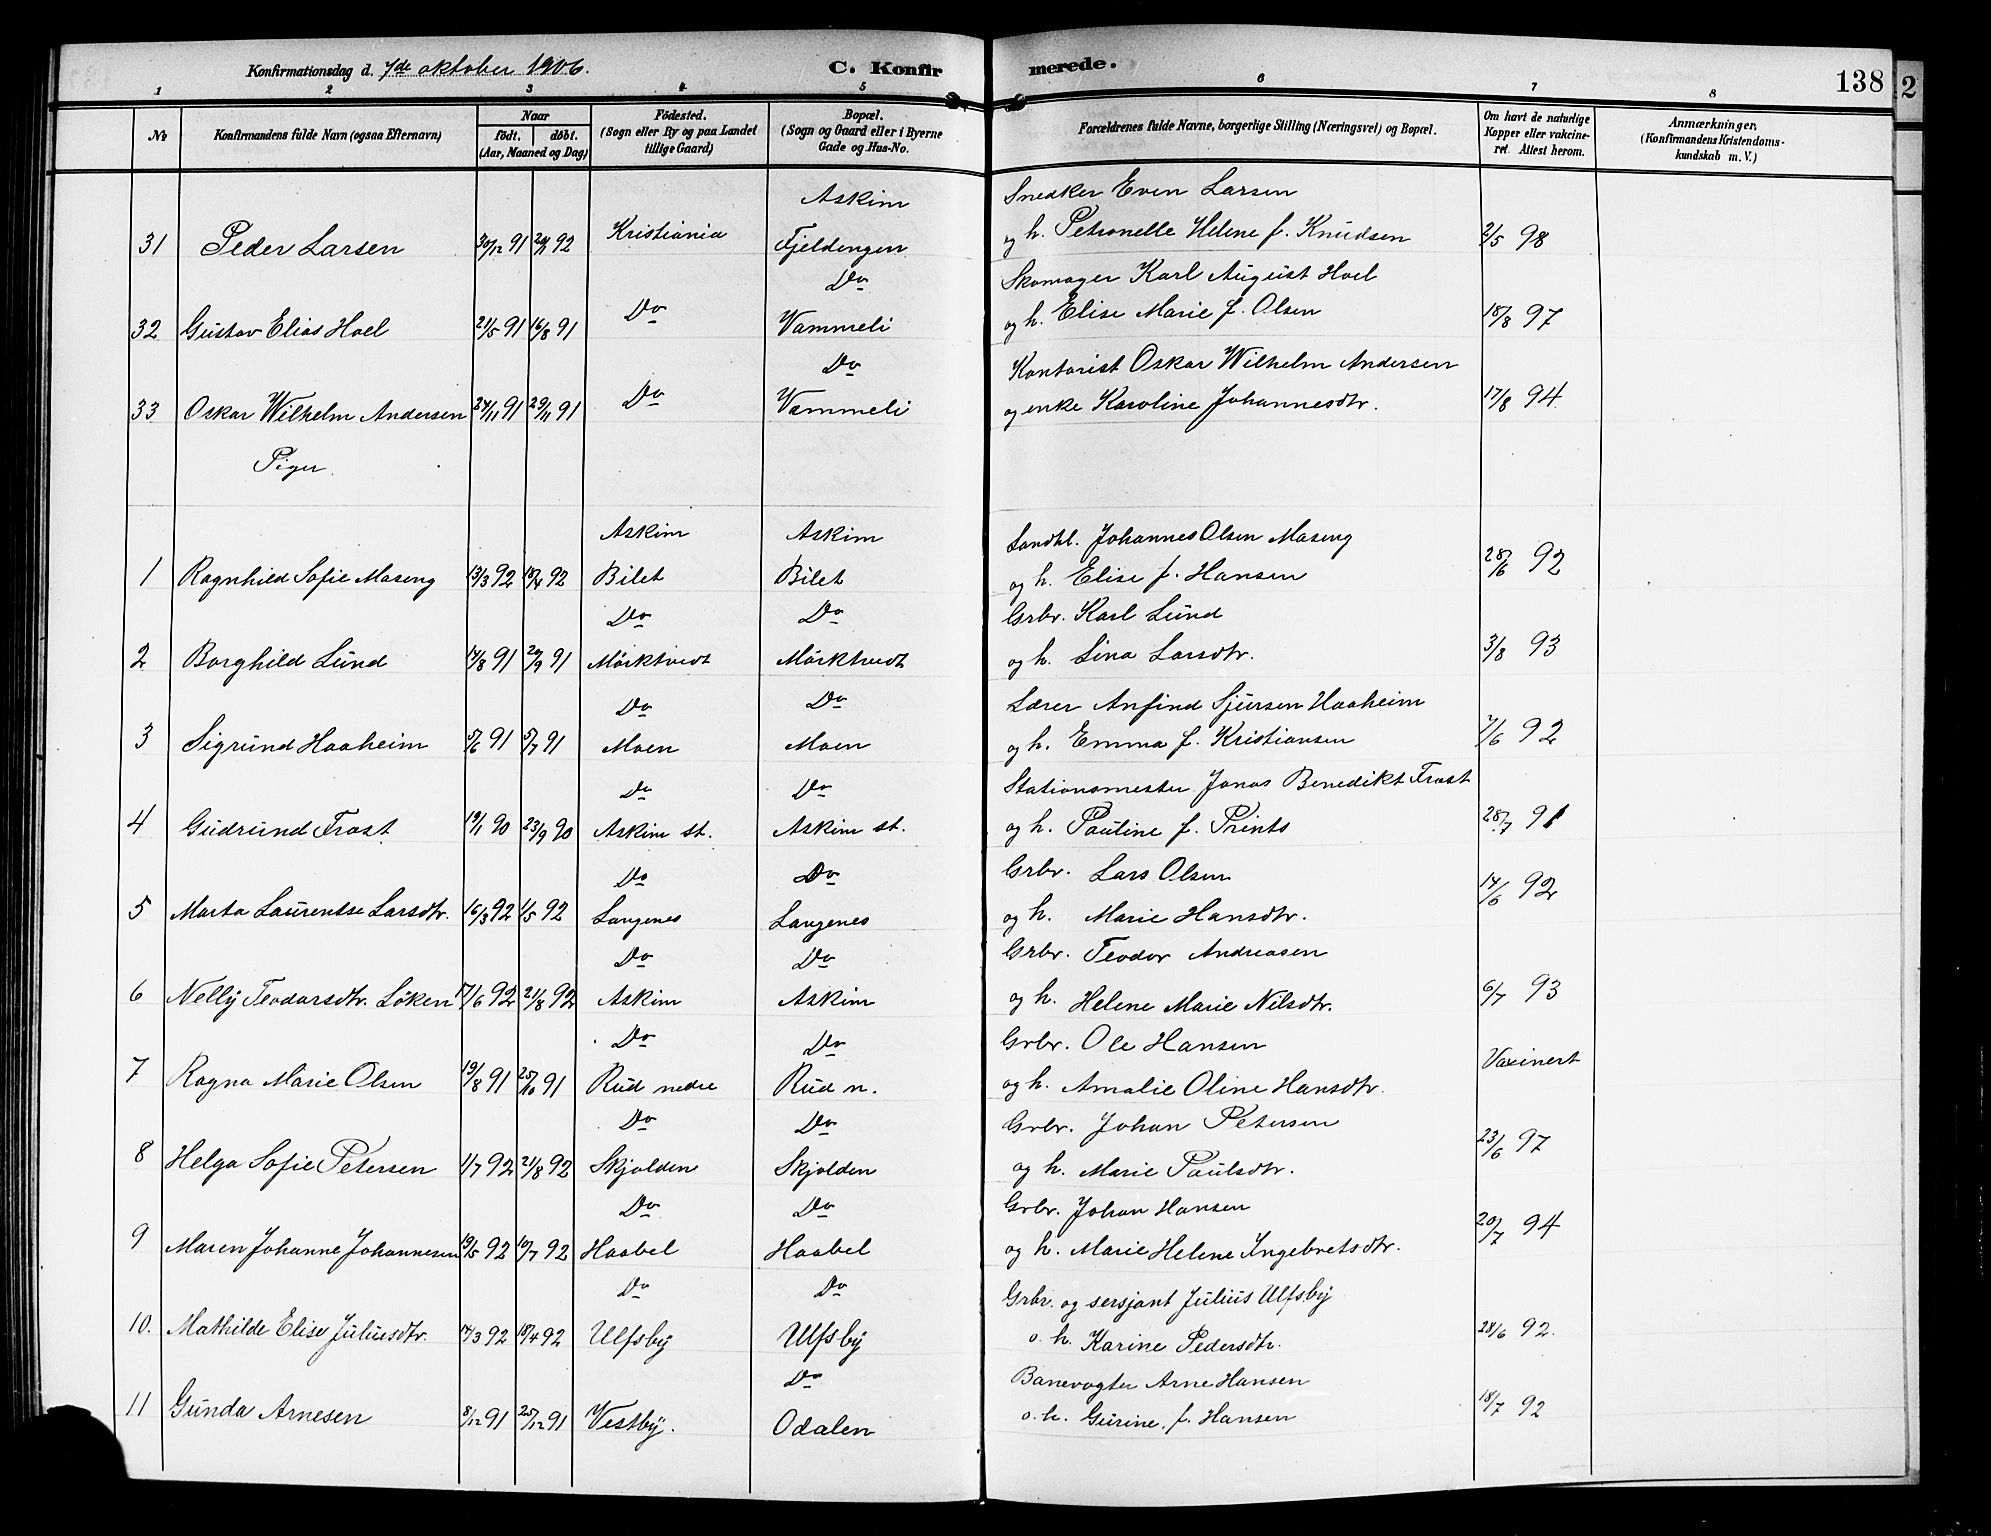 Konfirmationsdag d. 7de oktober 1906. C. Konfirmerede. 138 2
1 2 3 4 5 6 7 8
No Konfirmandens fulde Navn (ogsaa Efternavn) Naar födt. döbt. (Aar, Maaned og Dag) Födested. (Sogn eller By og paa Landet tillige Gaard) Bopæl. (Sogn og Gaard eller i Byerne Gade og Hus-No. Forældrenes fulde Navne, borgerlige Stilling (Næringsvei) og Bopæl. Om havt de naturlige Kopper eller vakcineret. Attest herom. Anmærkninger. (Konfirmandens Kristendomskundskab m. V.)
Askim Snedker Even Larsen
31 Peder Larsen 30/12 91 92 Kristiania Fjeldengen og h. Petronelle Helene f. Knudsen 2/5 98
Do Skomager Karl August Hoel
32 Gustav Elias Hoel 21/5 91 16/8 91 Do Vammeli og h. Elise Marie f. Olsen 18/8 97
Do Kontorist Oskar Wilhelm Andersen
33 Oskar Wilhelm Andersen 24/11 91 29/11 91 Do Vammeli og enke Karoline Johannesdtr. 17/8 94
Piger.
Askim Askim Landhl. Johannes Olsen Maseng
1 Ragnhild Sofie Maseng 13/3 92 18/4 92 Bilet Bilet og h. Elise f. Hansen 28/6 92
Do Do Grbr. Karl Lund
2 Borghild Lund 14/8 91 20/9 91 Mörktvedt Mörktvedt og h. Lina Larsdtr. 3/8 93
Do Do Lærer Anfind Sjursen Haaheim
3 Sigrund Haaheim 5/6 91 5/7 91 Moen Moen og h. Emma f. Kristiansen 7/6 92
Do Do Stationsmester Jonas Benedikt Frost
4 Gudrund Frost 19/1 90 23/9 90 Askim st. Askim st. og h. Pauline f. Prints 28/7 91
Do Do Grbr. Lars Olsen
5 Marta Laurentse Larsdtr. 16/3 92 1/5 92 Langenes Langenes og h. Marie Hansdtr. 14/6 92
Do Do Grbr. Teodor Andreasen
6 Nelly Teodorsdtr. Löken 17/6 92 21/8 92 Askim Askim og h. Helene Marie Nilsdtr. 6/7 93
Do Do Grbr. Ole Hansen Vaxinert
7 Ragna Marie Olsen 19/8 91 25/10 91 Rud nedre Rud n. og h. Amalie Oline Hansdtr.
Do Do Grbr. Johan Petersen
8 Helga Sofie Petersen 1/7 92 21/8 92 Skjolden Skjolden og h. Marie Paulsdtr. 23/6 97
Do Do Grbr. Johan Hansen
9 Maren Johanne Johannesen 19/5 92 10/7 92 Haabel Haabel og h. Marie Helene Ingebretsdtr. 20/7 94
Do Do Grbr. og sersjant Julius Ulfsby
10. Mathilde Elise Juliusdtr. 14/3 92 18/4 92 Ulfsby Ulfsby o. h. Karine Pedersdtr. 28/6 92.
Do Banevogter Arne Hansen
11 Gunda Arnesen 8/12 91 25/12 91 Vestby. Odalen o. h. Gurine f. Hansen 18/7 92